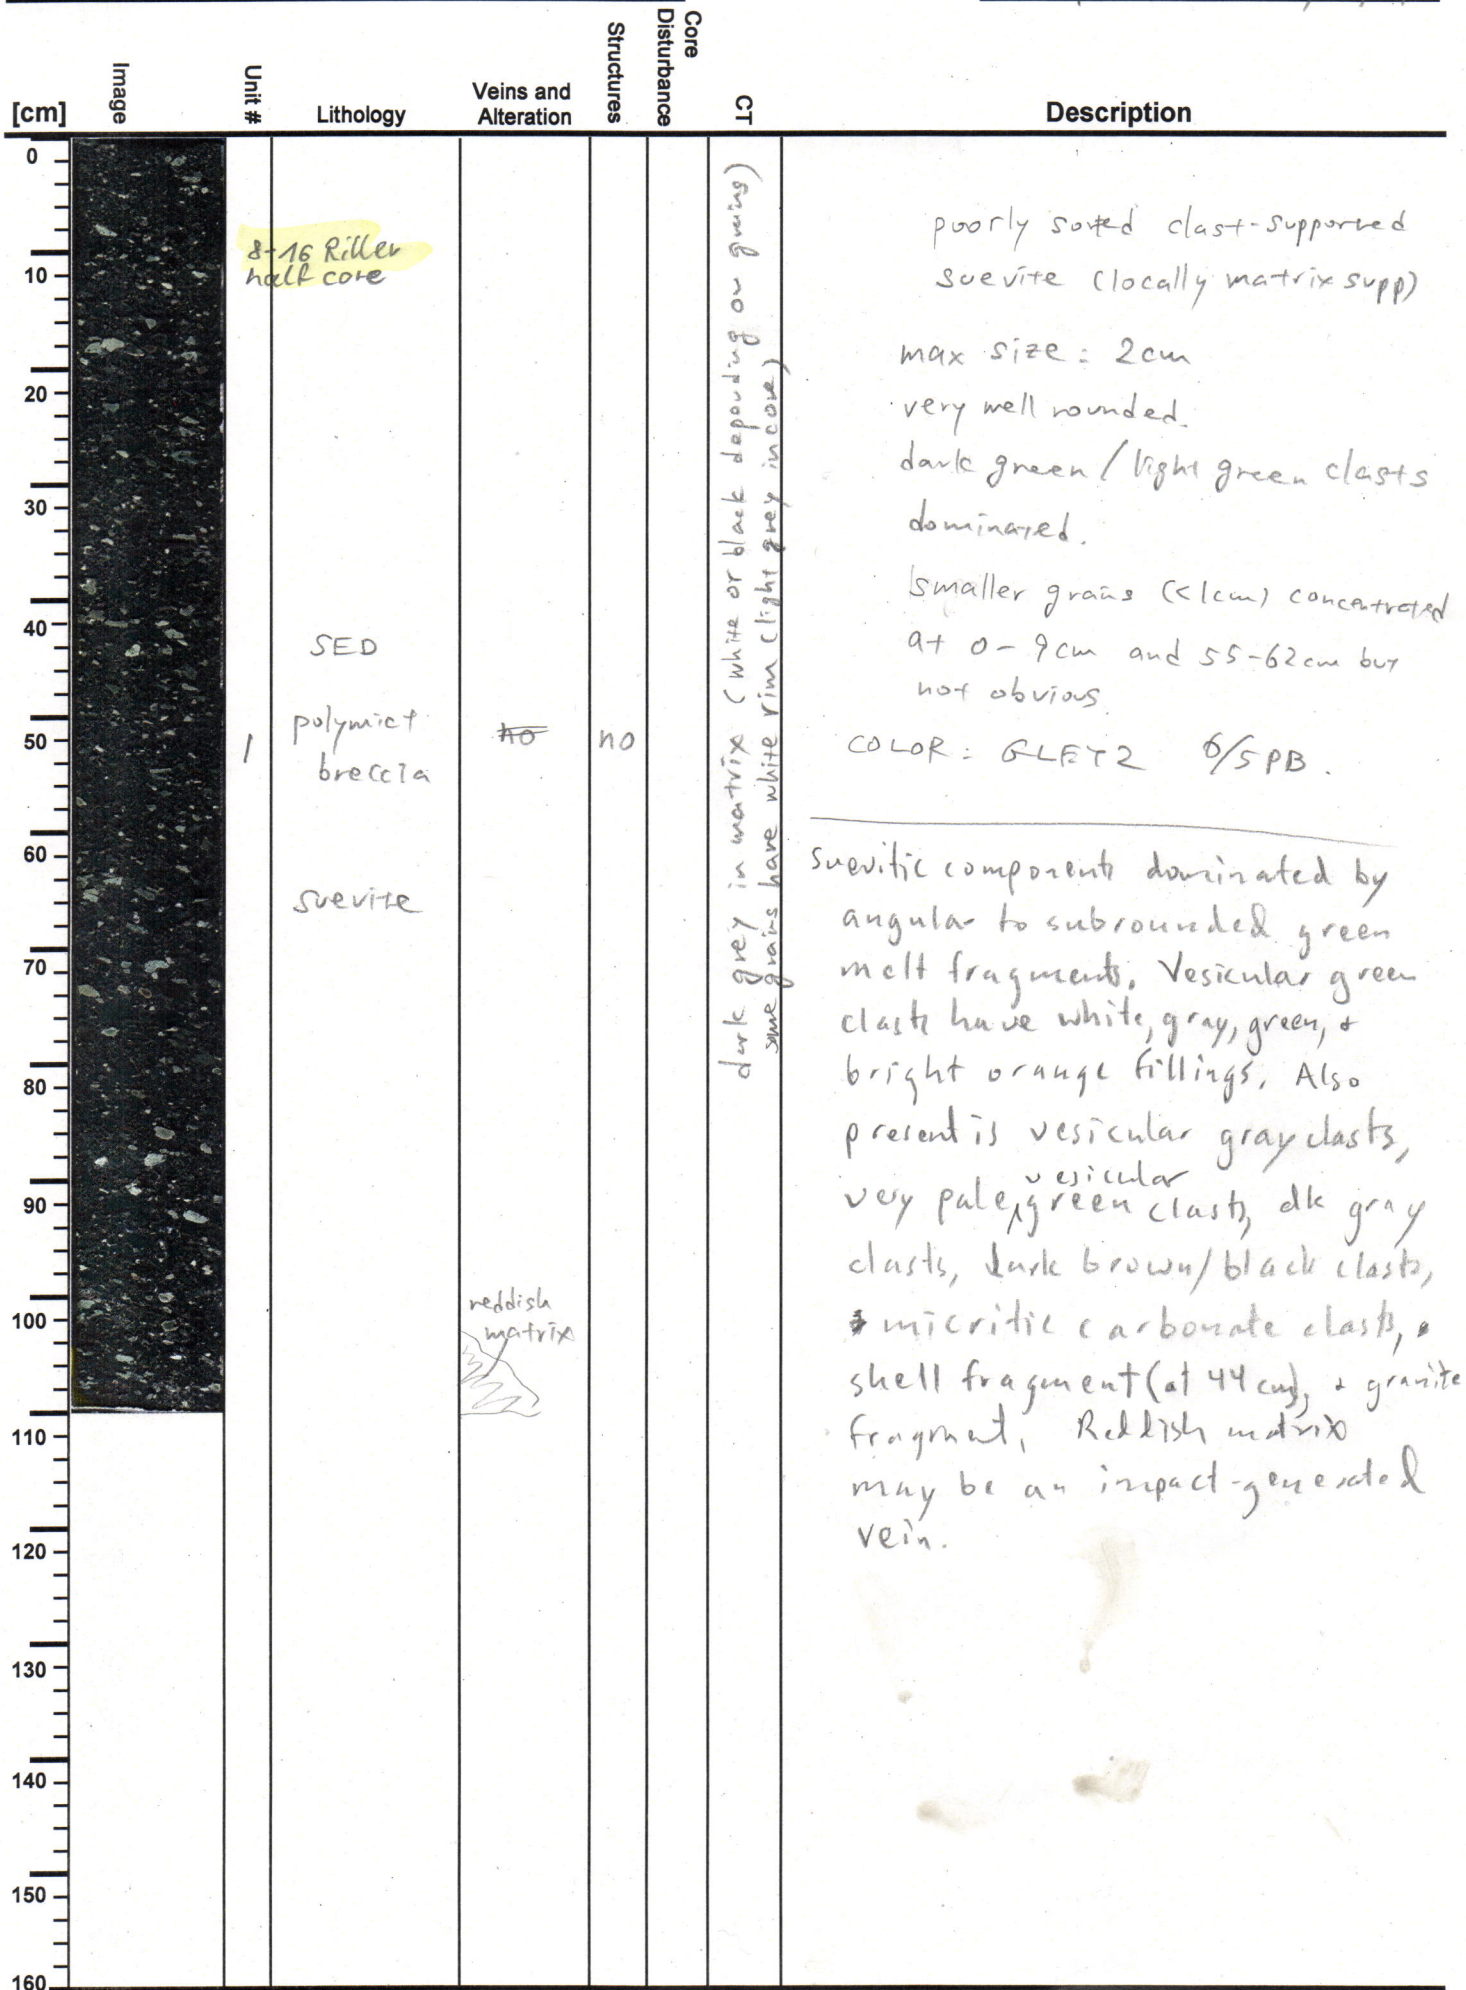 [cm]
Image
Unit #
Lithology
Veins and
Alteration
Structures
Core
Disturbance
CT
Description
0
10
20
30
40
50
60
70
80
90
100
110
120
130
140
150
160
8-16 Riller
half core
1
SED
polymict
breccia
suevite
no
reddish
matrix
no
dark grey in matrix (white or black depending on grains)
some grains have white rim (light grey in core)
poorly sorted clast-supported
suevite (locally matrix supp)
max size : 2cm
very well rounded.
dark green / light green clasts
dominated.
smaller grains (<1cm) concentrated
at 0-9cm and 55-62cm but
not obvious.
COLOR : GLEY2 6/5PB.
suevitic components dominated by
angular to subrounded green
melt fragments. Vesicular green
clasts have white, gray, green, +
bright orange fillings. Also
present is vesicular gray clasts,
very pale, vesicular green clasts, dk gray
clasts, dark brown/black clasts,
micritic carbonate clasts,
shell fragment (at 44 cm), + granite
fragment. Reddish matrix
may be an impact-generated
vein.